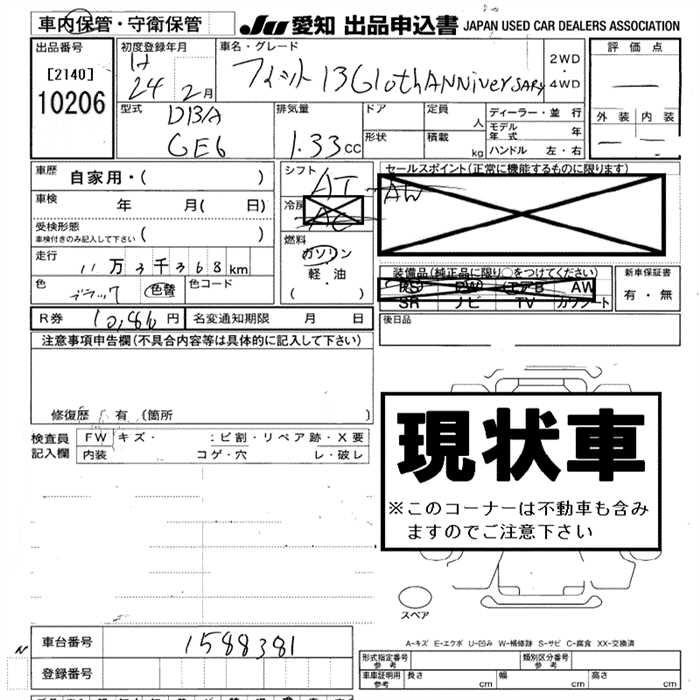 車内保管・守衛保管
JU 愛知 出品申込書 JAPAN USED CAR DEALERS ASSOCIATION
出品番号
[2140]
10206
初度登録年月
H
24 年 2 月
車名・グレード
フィット 13G 10th ANNiverSARY
2WD
・
4WD
評価点
外装 内装
型式
DBA
GE6
排気量
1.33 cc
ドア
形状
定員 人
積載 kg
ディーラー・並行
モデル年式 年
ハンドル 左・右
車歴
自家用・( )
車検
年 月( 日)
受検形態
車検付きのみ記入して下さい ( )
走行
11万3千368km
色
ブラック
色替
色コード
シフト
AT
冷房
AC
燃料
ガソリン
軽・油
( ・ )
セールスポイント(正常に機能するものに限ります)
AW
装備品(純正品に限り○をつけてください)
PS PW エアB AW
SR ナビ TV カワシート
新車保証書
有・無
R券 10,860円 名変通知期限 月 日
後日品
注意事項申告欄(不具合内容等は具体的に記入して下さい)
修復歴 有(箇所 )
検査員
記入欄
FW キズ・ ヒビ割・リペア跡・X要
内装 コゲ・穴 レ・破レ
現状車
※このコーナーは不動車も含み
ますのでご注意下さい
スペア
A-キズ E-エクボ U-凹み W-補修跡 S-サビ C-腐食 XX-交換済
車台番号 1588381
登録番号
形式指定番号 参考
類別区分番号 参考
車車証明用 参考
長さ cm 幅 cm 高さ cm